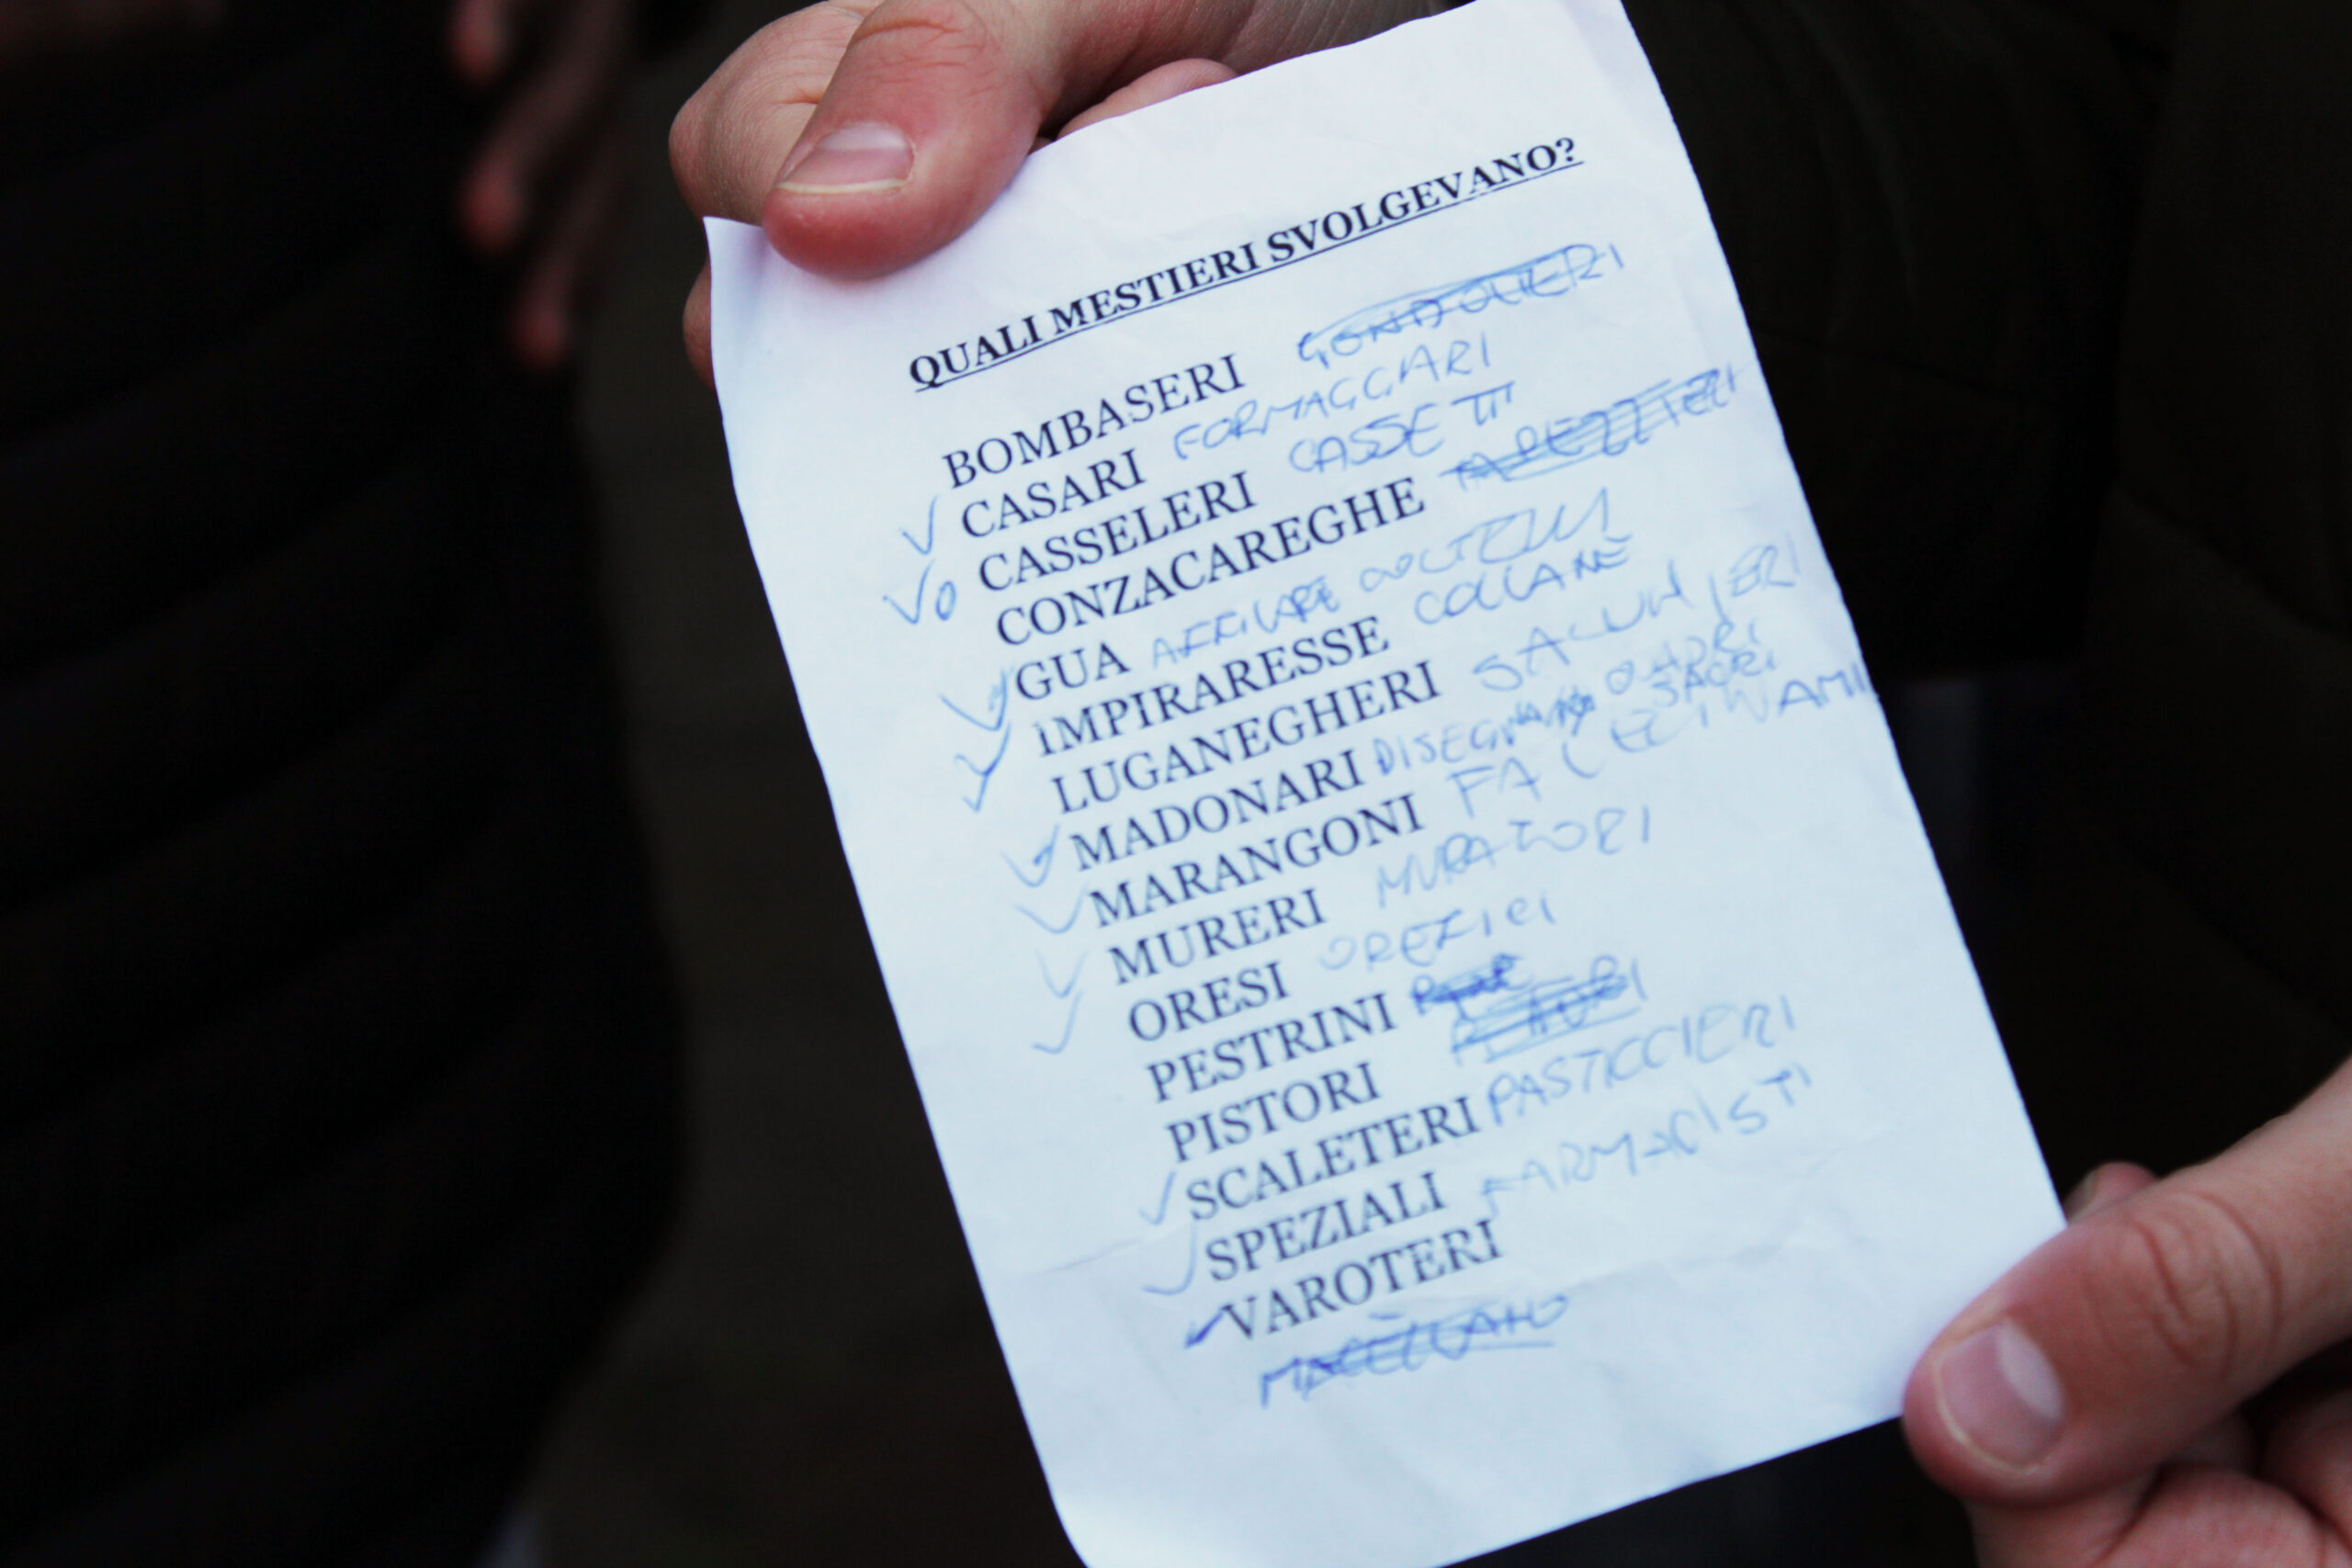 QUALI MESTIERI SVOLGEVANO?
BOMBASERI GONDOLIERI
CASARI FORMAGGIARI
CASSELERI CASSETTI
CONZACAREGHE TAPEZZIERI
GUA AFFILARE COLTELLI
IMPIRARESSE COLLANE
LUGANEGHERI SALUMIERI
MADONARI DISEGNANO QUADRI SACRI
MARANGONI FALEGNAMI
MURERI MURATORI
ORESI OREFICI
PESTRINI
PISTORI
SCALETERI PASTICCIERI
SPEZIALI FARMACISTI
VAROTERI
MACELLAIO